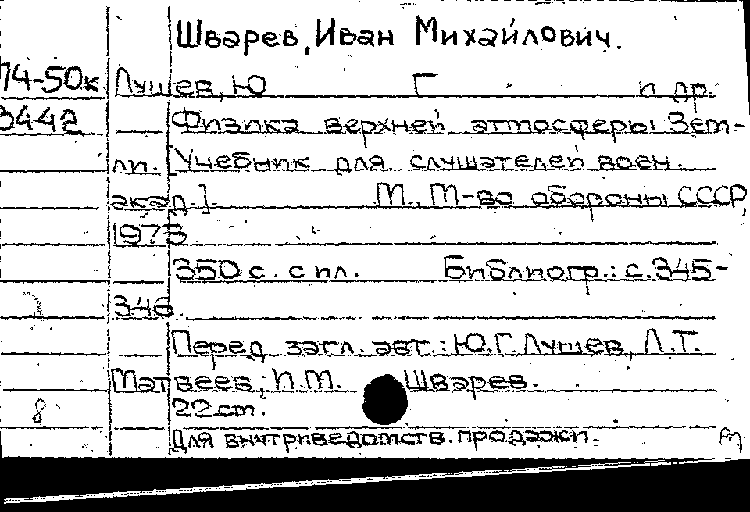 Шварев, Иван Михайлович.
74-50к Лушев, Ю Г и др.
3442 Физика верхней атмосферы Зем-
ли. [Учебник для слушателей воен.
акад.]. М., М-во обороны СССР,
1973
350 с. с ил. Библиогр.: с. 345-
346.
Перед загл. авт.: Ю.Г. Лушев, Л.Т.
Матвеев, И.М. Шварев.
8 22 см.
Для внутриведомств. продажи.